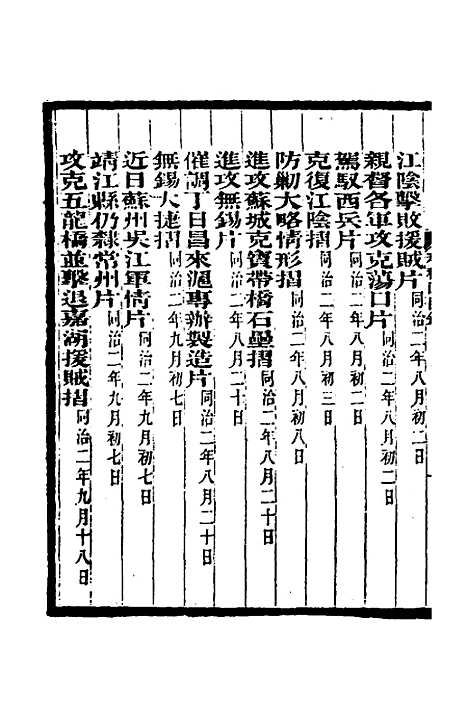 江陰擊敗援賊片同治二年八月初二日
親督各軍攻克蕩口片同治二年八月初二日
駕馭西兵片同治二年八月初二日
克復江陰摺同治二年八月初三日
防勦大略情形摺同治二年八月初八日
進攻蘇城克寶帶橋石壘摺同治二年八月二十日
進攻無錫片同治二年八月二十日
催調丁日昌來滬專辦製造片同治二年八月二十日
無錫大捷摺同治二年九月初七日
近日蘇州吳江軍情片同治二年九月初七日
靖江縣仍隸常州片同治二年九月初七日
攻克五龍橋並擊退嘉湖援賊摺同治二年九月十八日